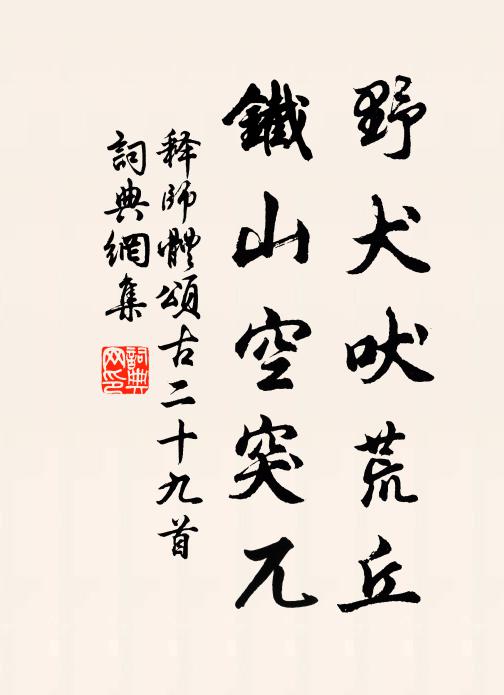 野犬吠荒丘
鐵山空突兀
释師體頌古二十九首
詞典網集
詞典網印